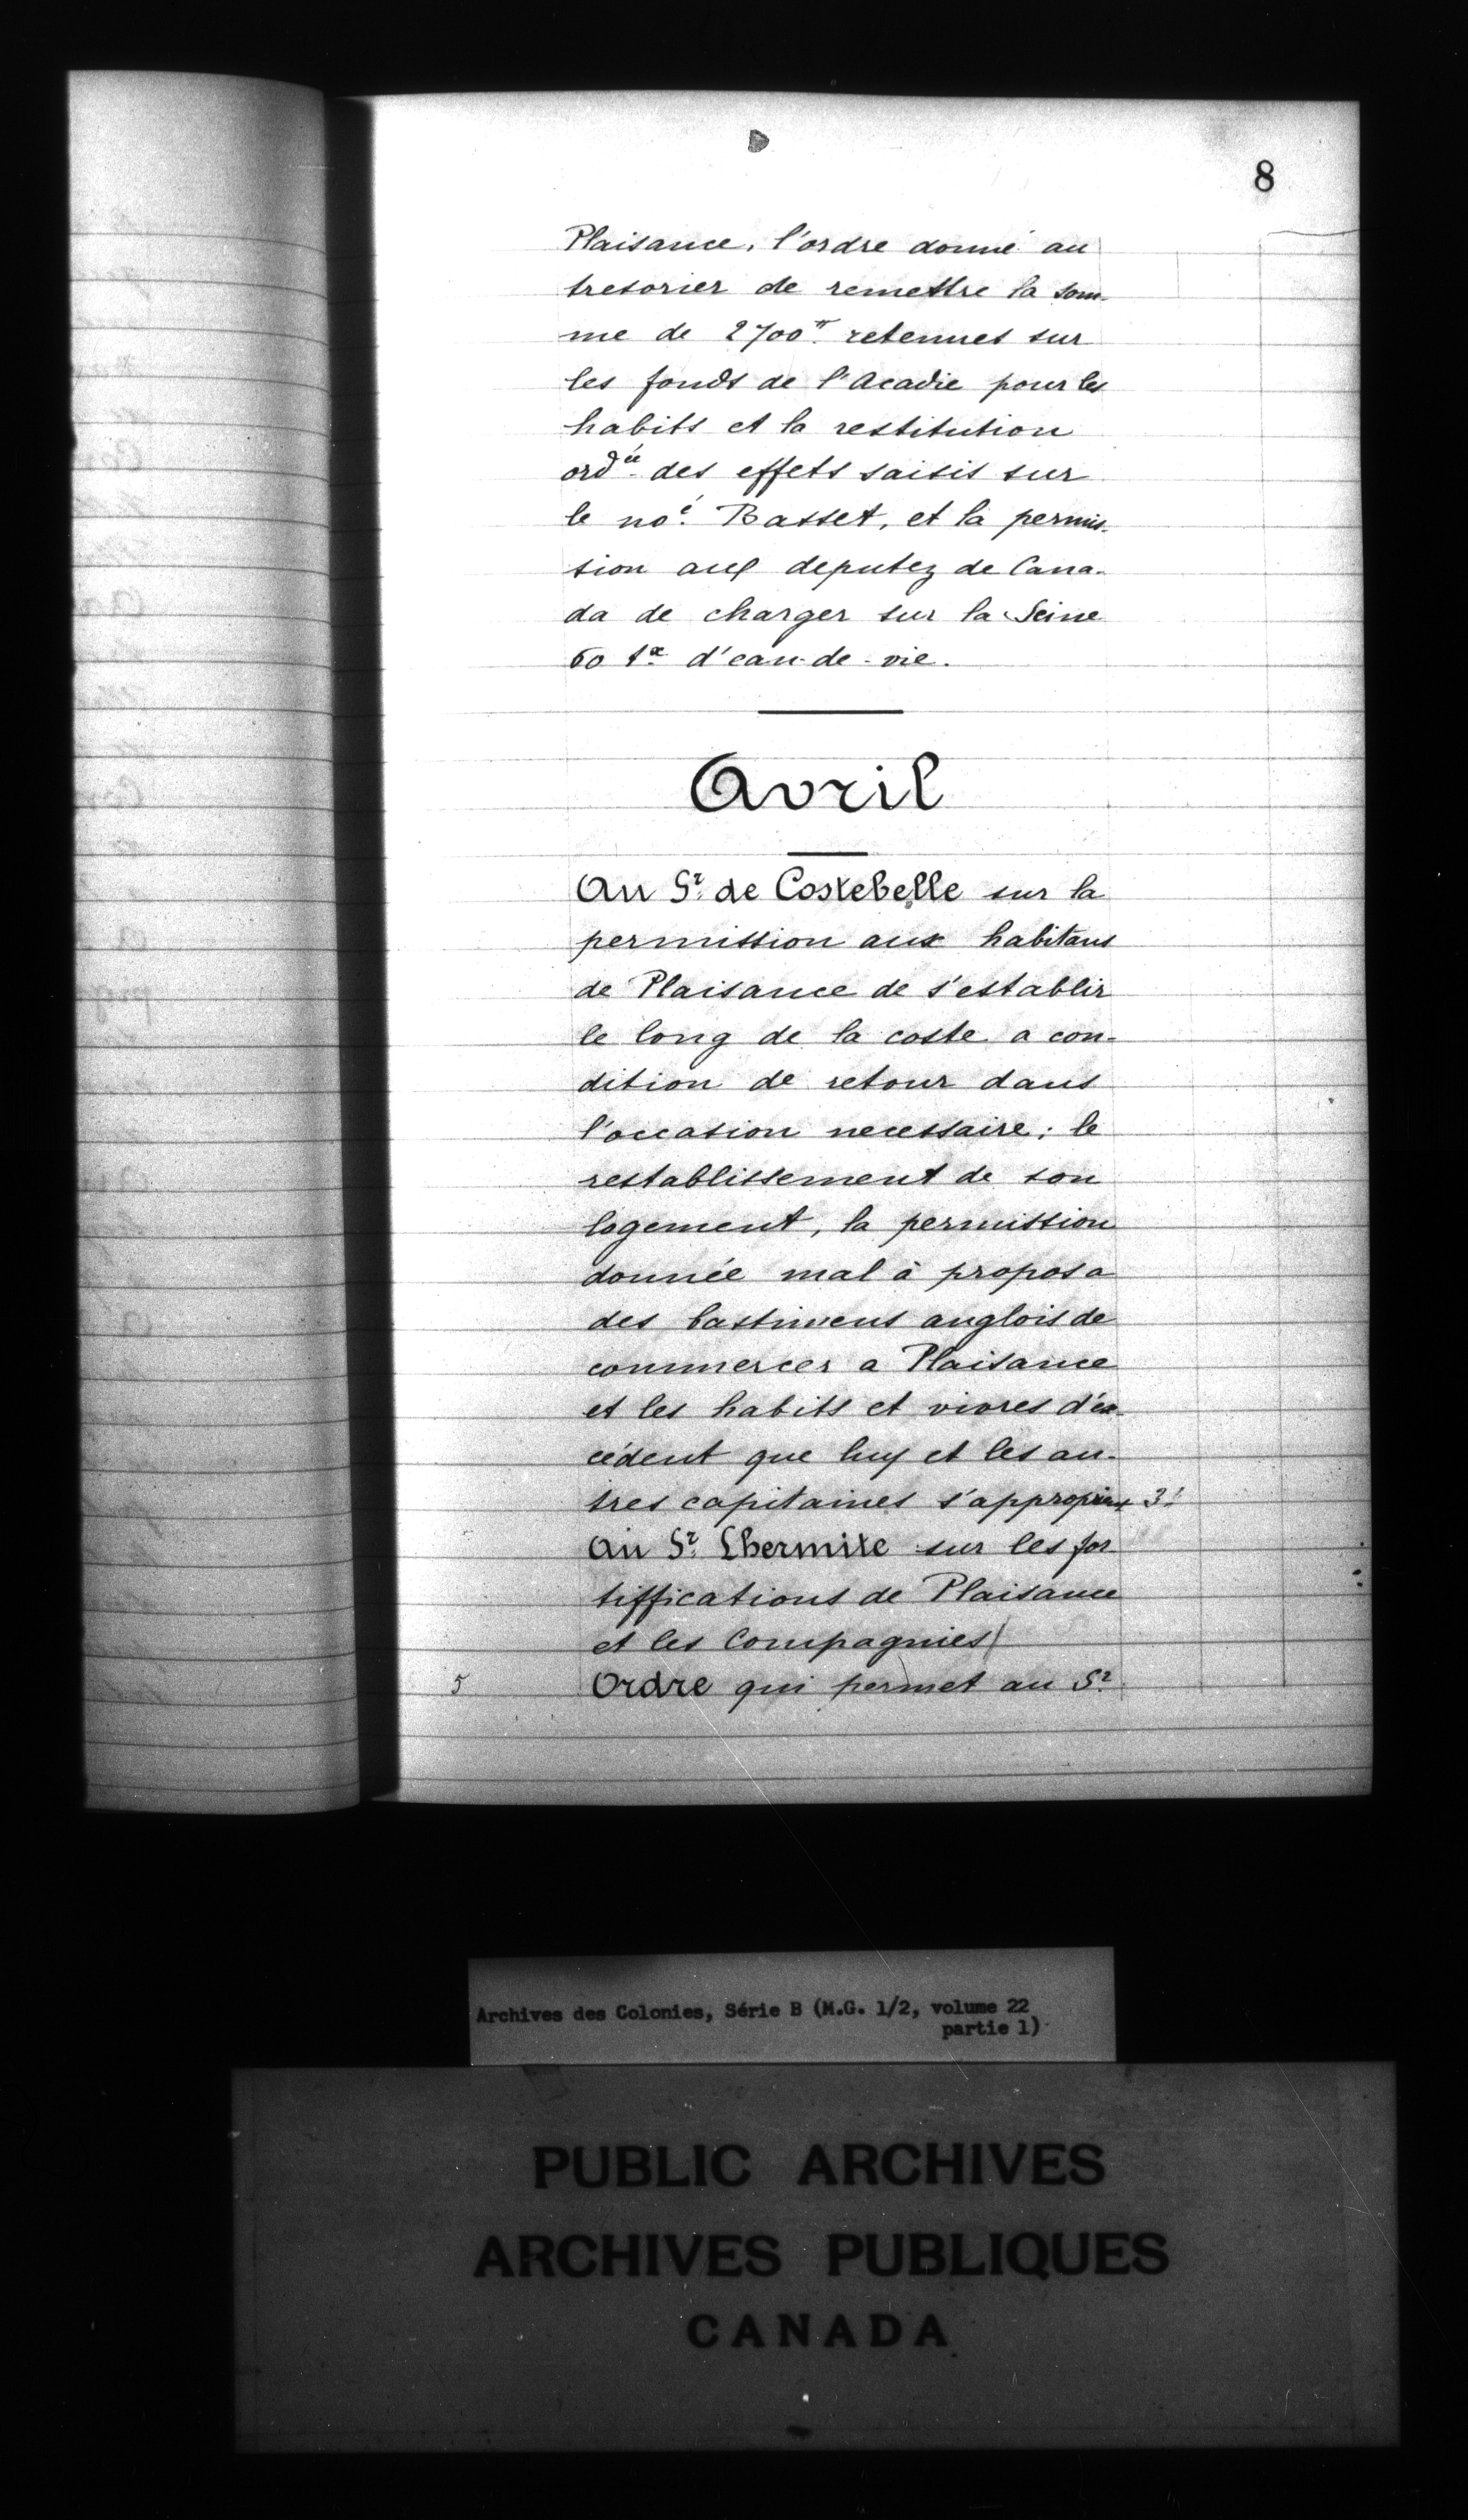 8
Plaisance, l'ordre donné au
tresorier de remettre la som-
me de 2700tt retenues sur
les fonds de l'Acadie pour les
habits et la restitution
ordée des effets saisis sur
le noé Basset, et la permis-
sion aux deputez de Cana-
da de charger sur la Seine
60 d'eau-de-vie.
Avril
Au Sr de Costebelle sur la
permission aux habitans
de Plaisance de s'establir
le long de la coste a con-
dition de retour dans
l'occasion necessaire; le
restablissement de son
logement, la permission
donnée mal à propos a
des bastimens anglois de
commercer a Plaisance
et les habits et vivres d'ex-
cédent que luy et les au-
tres capitaines s'approprient
Au Sr Lhermite sur les for
tiffications de Plaisance
et les Compagnies
5 Ordre qui permet au Sr
Archives des Colonies, Série B (M.G. 1/2, volume 22
partie 1)
PUBLIC ARCHIVES
ARCHIVES PUBLIQUES
CANADA